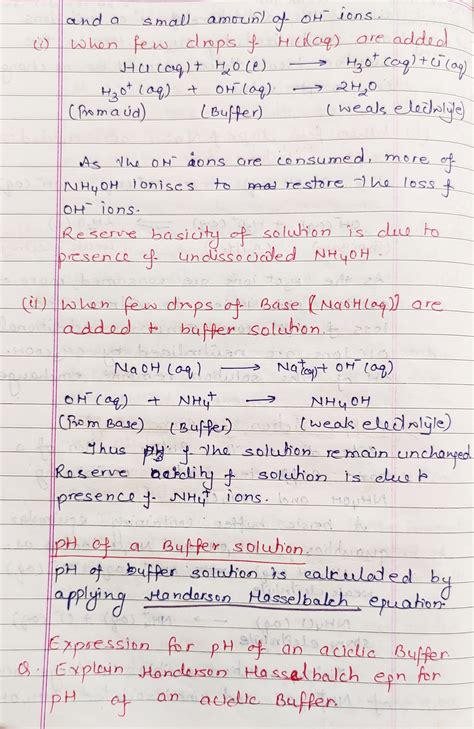 and a small amount of OH⁻ ions.
(i) When few drops of HCl(aq) are added
HCl (aq) + H₂O(l) → H₃O⁺ (aq) + Cl⁻(aq)
H₃O⁺ (aq) + OH⁻(aq) → 2H₂O
(From acid) (Buffer) (weak electrolyte)
As the OH⁻ ions are consumed, more of
NH₄OH ionises to restore the loss of
OH⁻ ions.
Reserve basicity of solution is due to
presence of undissociated NH₄OH.
(ii) When few drops of Base [NaOH(aq)] are
added to buffer solution.
NaOH (aq) → Na⁺(aq) + OH⁻(aq)
OH⁻(aq) + NH₄⁺ → NH₄OH
(From Base) (Buffer) (weak electrolyte)
Thus pH of the solution remain unchanged
Reserve acidity of solution is due to
presence of NH₄⁺ ions.
pH of a Buffer solution
pH of buffer solution is calculated by
applying Handerson Hasselbalch equation
Expression for pH of an acidic Buffer
Q. Explain Handerson Hasselbalch eqn for
pH of an acidic Buffer